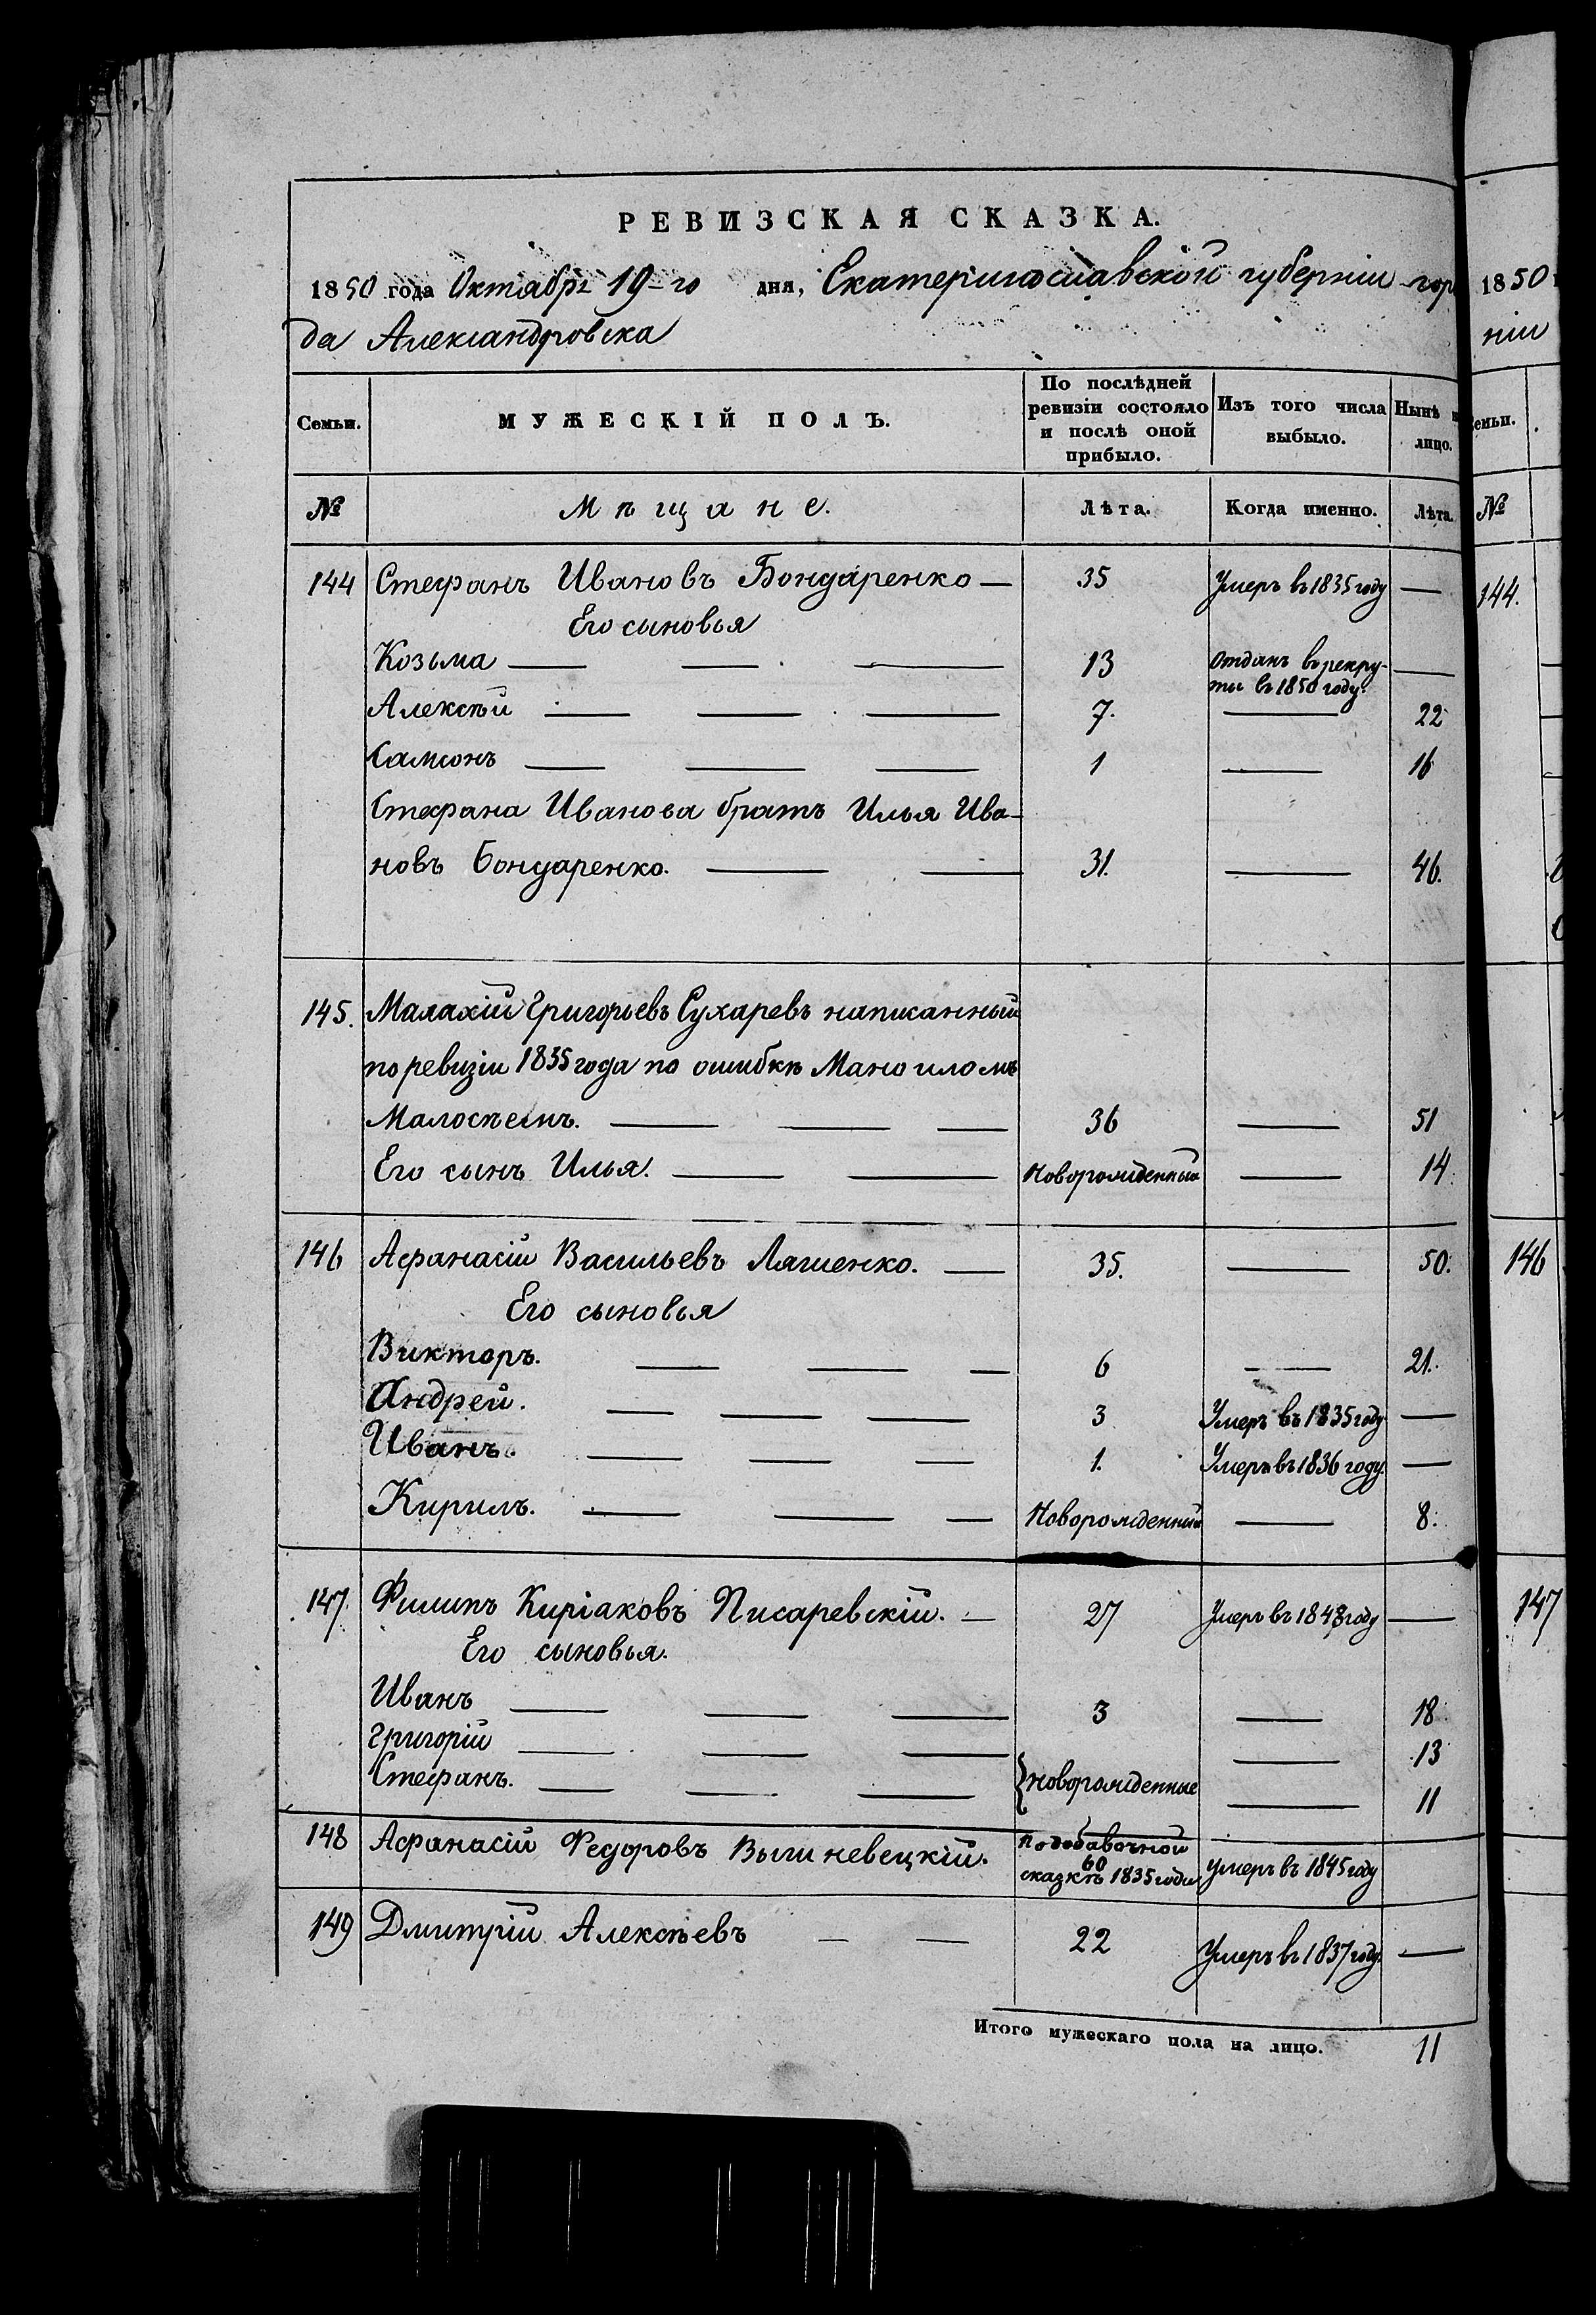 РЕВИЗСКАЯ СКАЗКА.
1850 года Октября 19-го дня, Екатеринославской губерніи горо
да Александровска
Семьи.
МУЖЕСКІЙ ПОЛЪ.
По послѣдней ревизіи состояло и послѣ оной прибыло.
Изъ того числа выбыло.
Нынѣ на лицо.
№ Мѣщане. Лѣта. Когда именно. Лѣта.
144 Стефанъ Ивановъ Бондаренко — 35 Умеръ въ 1835 году —
Его сыновья
Козьма — — — 13 Отданъ въ рекру-
ты въ 1850 году. —
Алексѣй — — — 7. — 22
Самсонъ — — — 1 — 16
Стефана Иванова братъ Илья Ива-
новъ Бондаренко. — — 31. — 46.
145. Малахій Григорьевъ Сухаревъ написанный
по ревизіи 1835 года по ошибкѣ Маноиломъ
Малосѣемъ. — — — 36 — 51
Его сынъ Илья. — — Новорожденный — 14.
146 Афанасій Васильевъ Ляшенко. — 35. — 50.
Его сыновья
Викторъ. — — — 6 — 21.
Андрей. — — — 3 Умеръ въ 1835 году —
Иванъ. — — — 1. Умеръ въ 1836 году. —
Кирилъ. — — — Новорожденный — 8.
147. Филипъ Киріаковъ Писаревскій. — 27 Умеръ въ 1848 году —
Его сыновья.
Иванъ — — — 3 — 18
Григорій — — — — 13
Стефанъ. — — — } новорожденные — 11
148 Афанасій Федоровъ Вышневецкій. По добавочной
60
сказкѣ 1835 года умеръ въ 1845 году
149 Дмитрій Алексѣевъ — — 22 Умеръ въ 1837 году. —
Итого мужескаго пола на лицо. 11
1850
ніи
Семьи.
№
144.
146
147